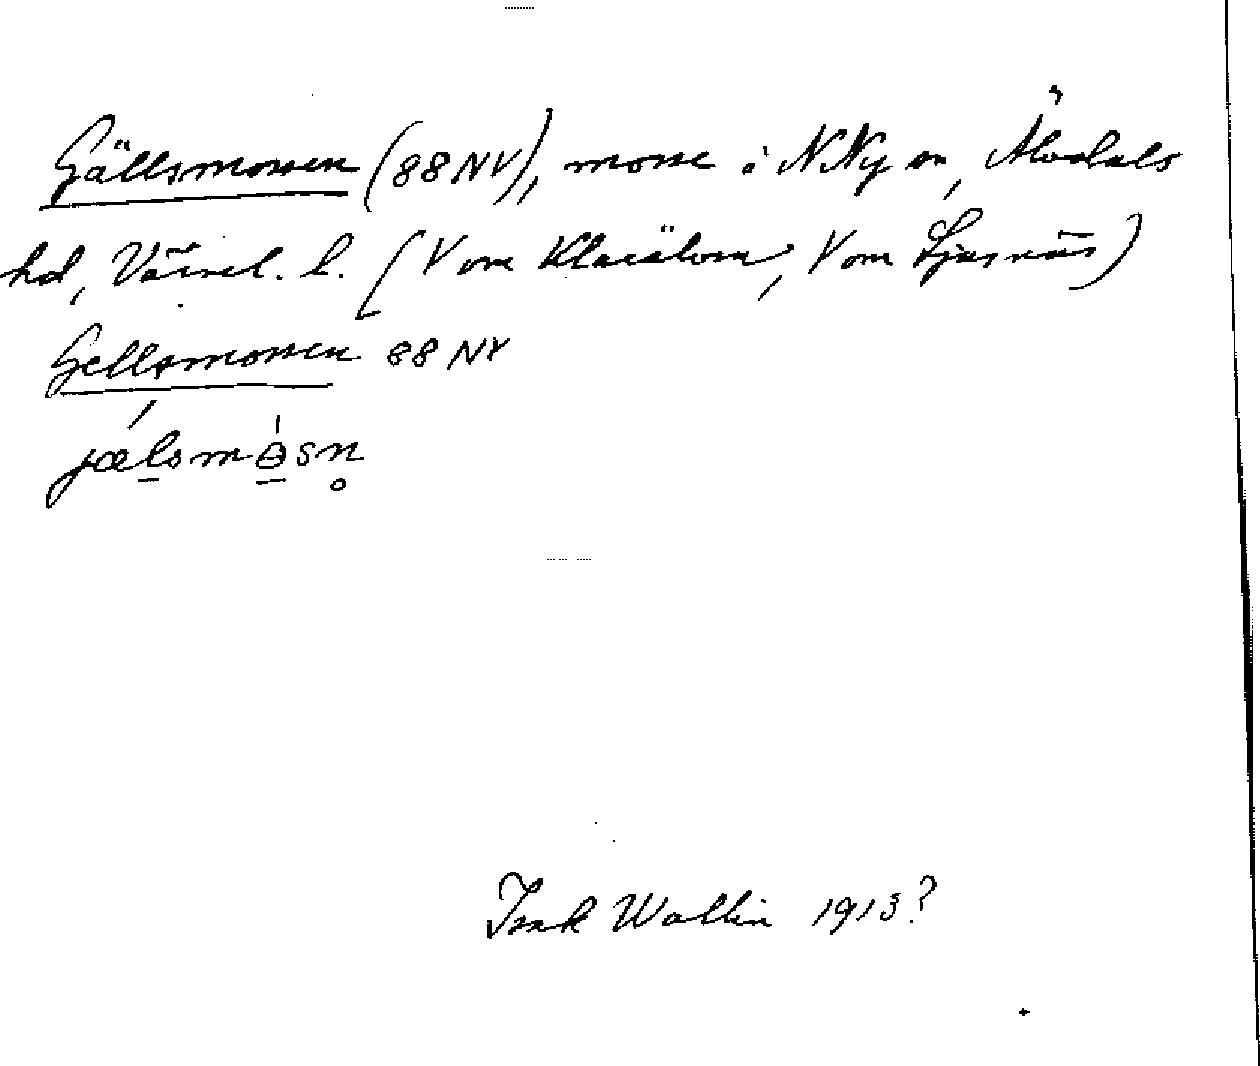 Gällsmossen (88NV), mosse i NNy sn, Älvdals
hd, Värml. l. (V om Klarälven, V om Ljusnäs)
Gellsmossen 88 NV
jælsmɵsn̥
Isak Wallin 1913?